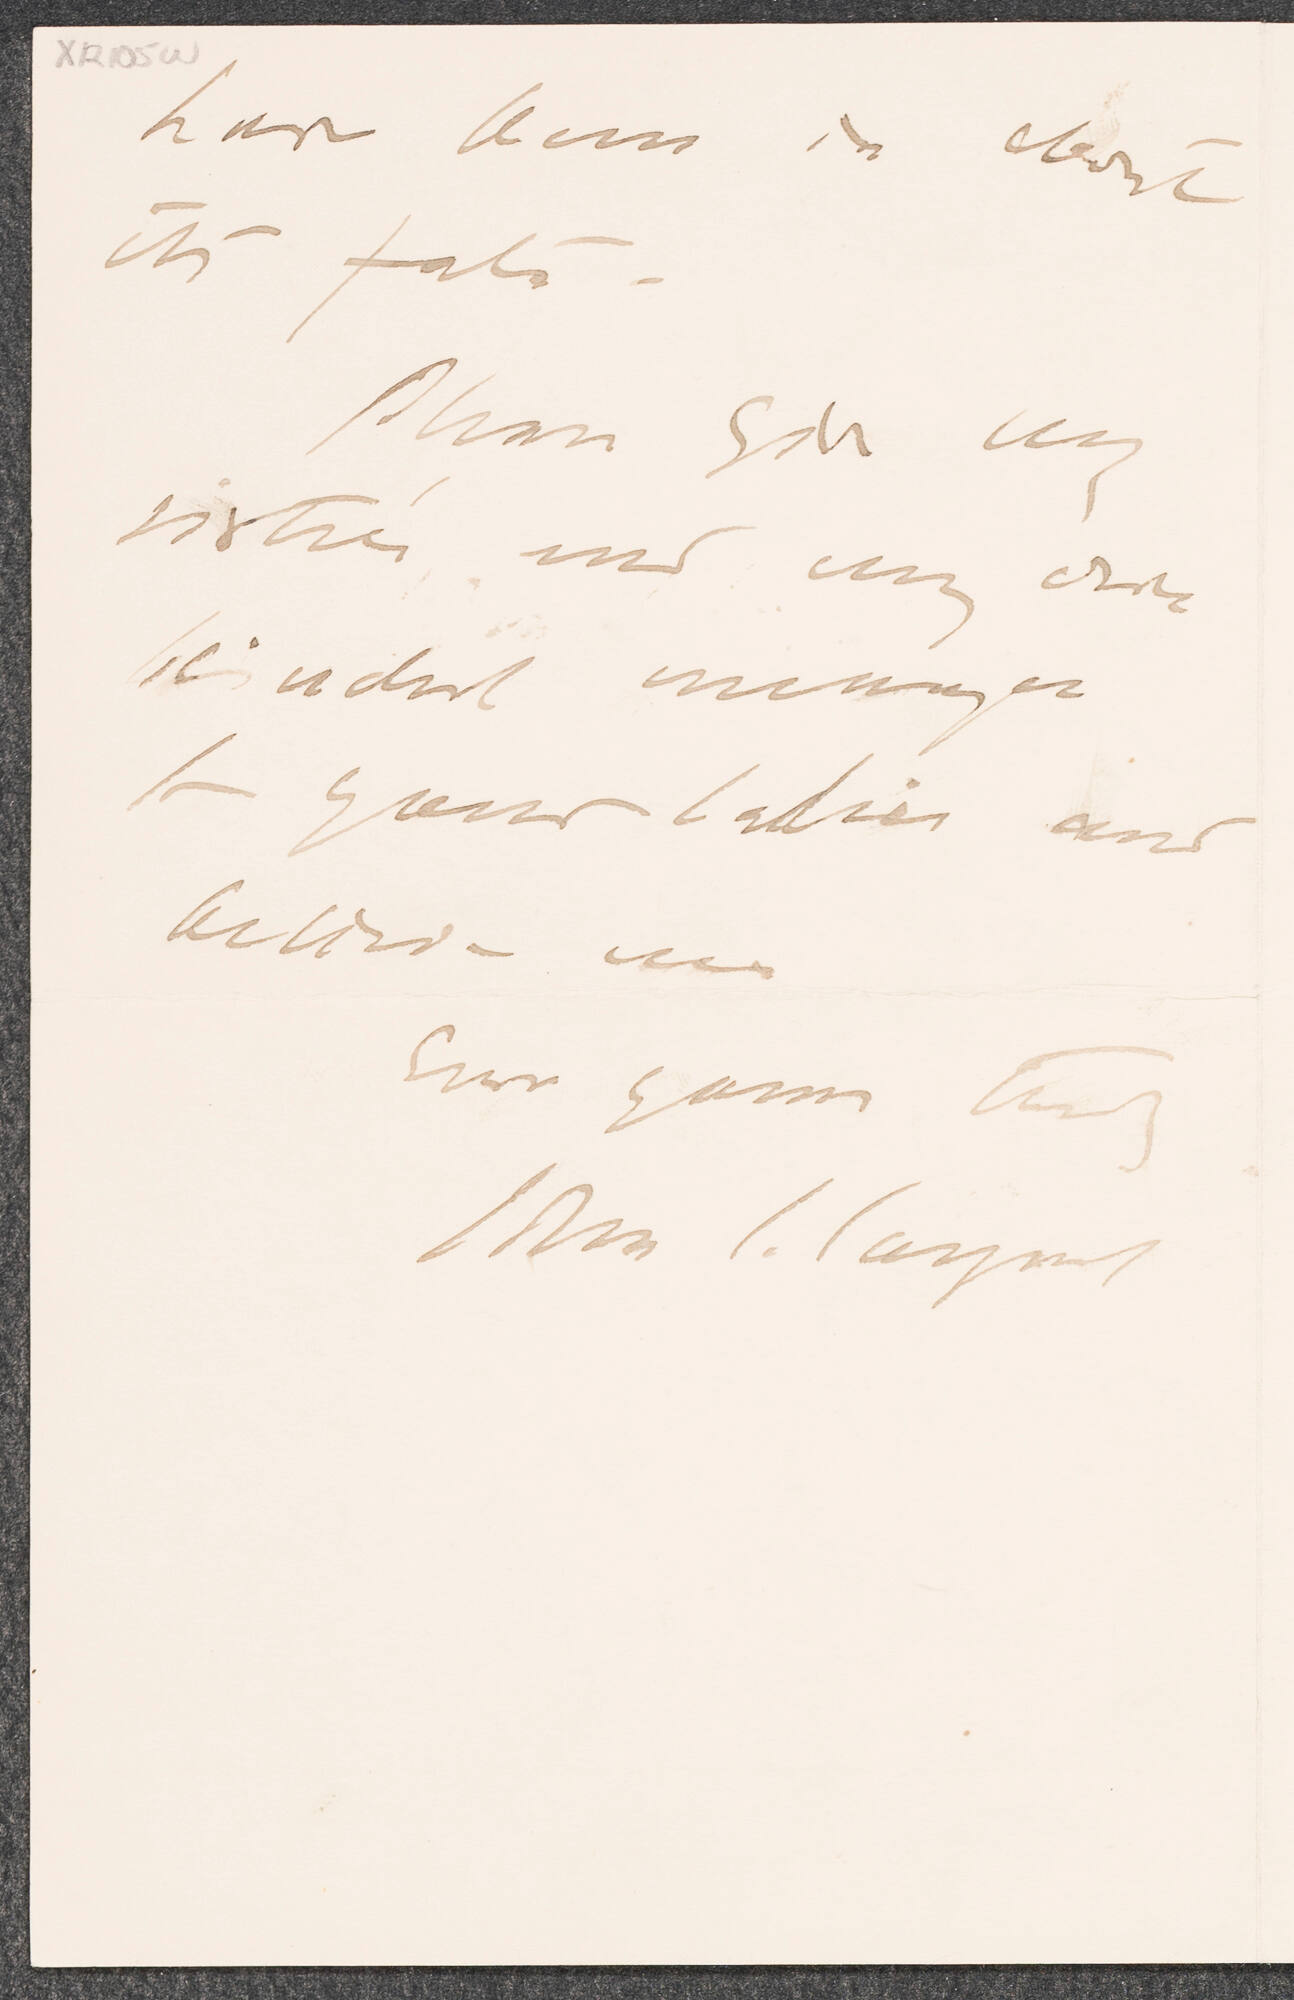 XR105W
have been in doubt
its fate -
Please give my
sister's and my own
kindest messages
to your ladies and
believe me
Ever yours truly
John S. Sargent